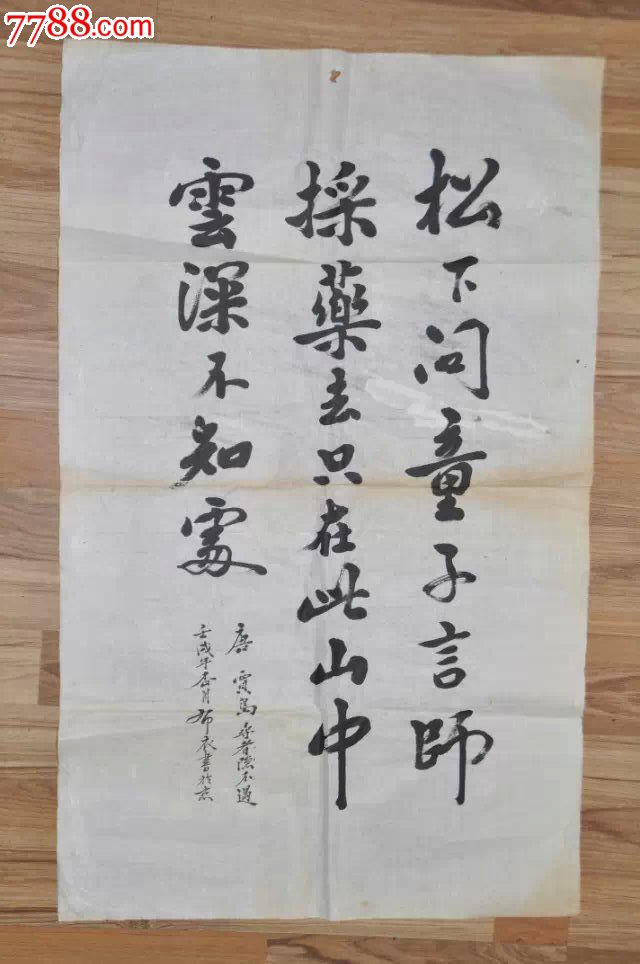 7788.com
松下问童子言師
採藥去只在此山中
雲深不知處
唐 賈島 尋者隱不遇
壬戌年 月 布衣書於京